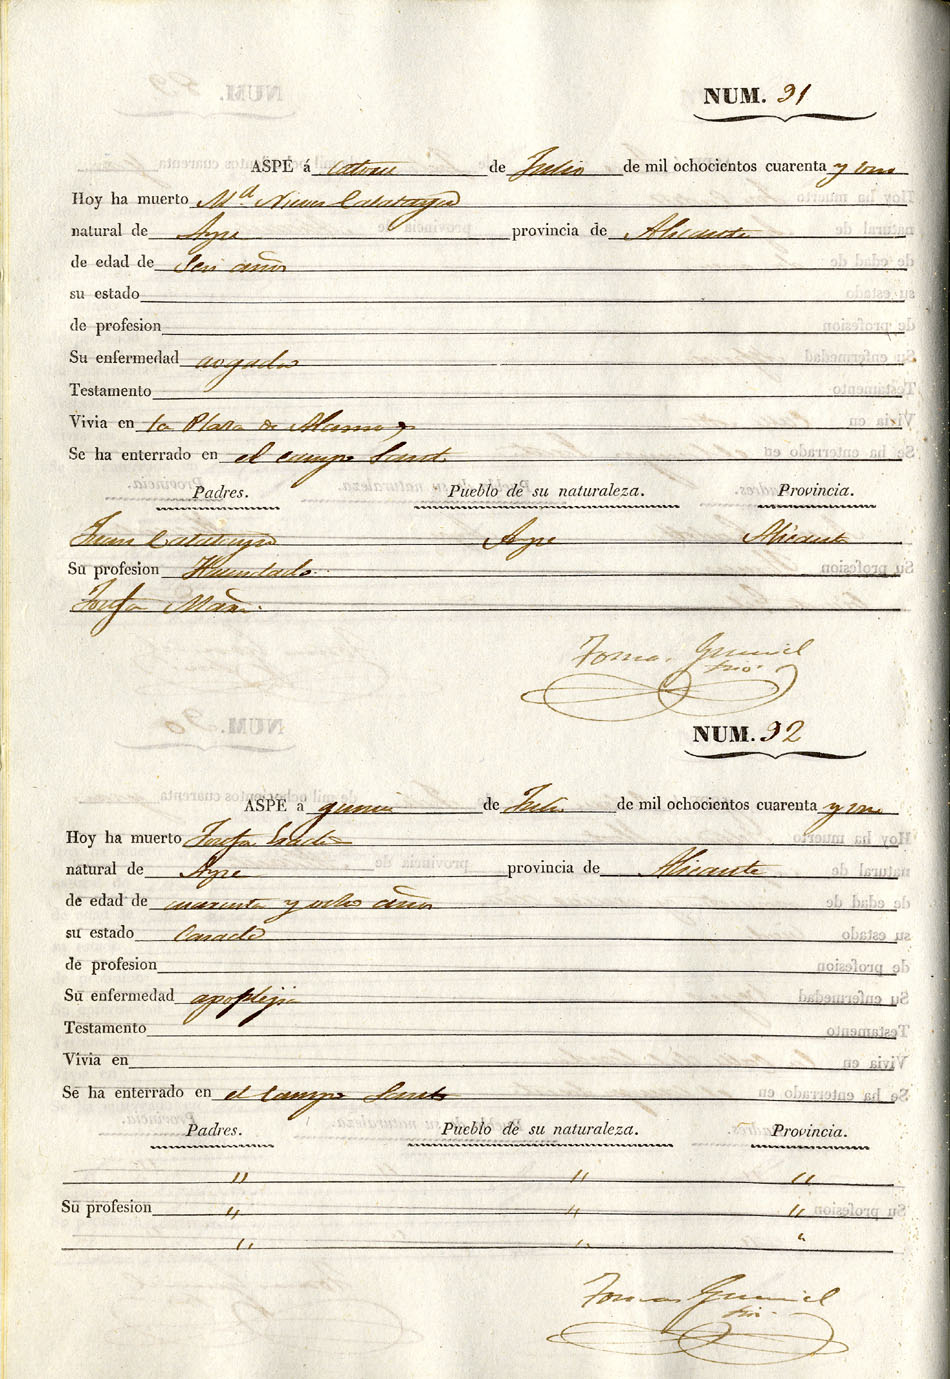 NUM. 91
ASPE á catorce de Julio de mil ochocientos cuarenta y uno
Hoy ha muerto M.ª Nieves Calatayud
natural de Aspe provincia de Alicante
de edad de Seis años
su estado
de profesion
Su enfermedad aogada
Testamento
Vivia en la Plaza de
Se ha enterrado en el campo Santo
Padres. Pueblo de su naturaleza. Provincia.
Juan Calatayud Aspe Alicante
Su profesion Hacendado
Josefa
Tomas
NUM. 92
ASPE a quince de Julio de mil ochocientos cuarenta y uno
Hoy ha muerto Josefa
natural de Aspe provincia de Alicante
de edad de cuarenta y ocho años
su estado Casada
de profesion
Su enfermedad apoplejia
Testamento
Vivia en
Se ha enterrado en el campo Santo
Padres. Pueblo de su naturaleza. Provincia.
" " "
Su profesion " " "
" " "
Tomas